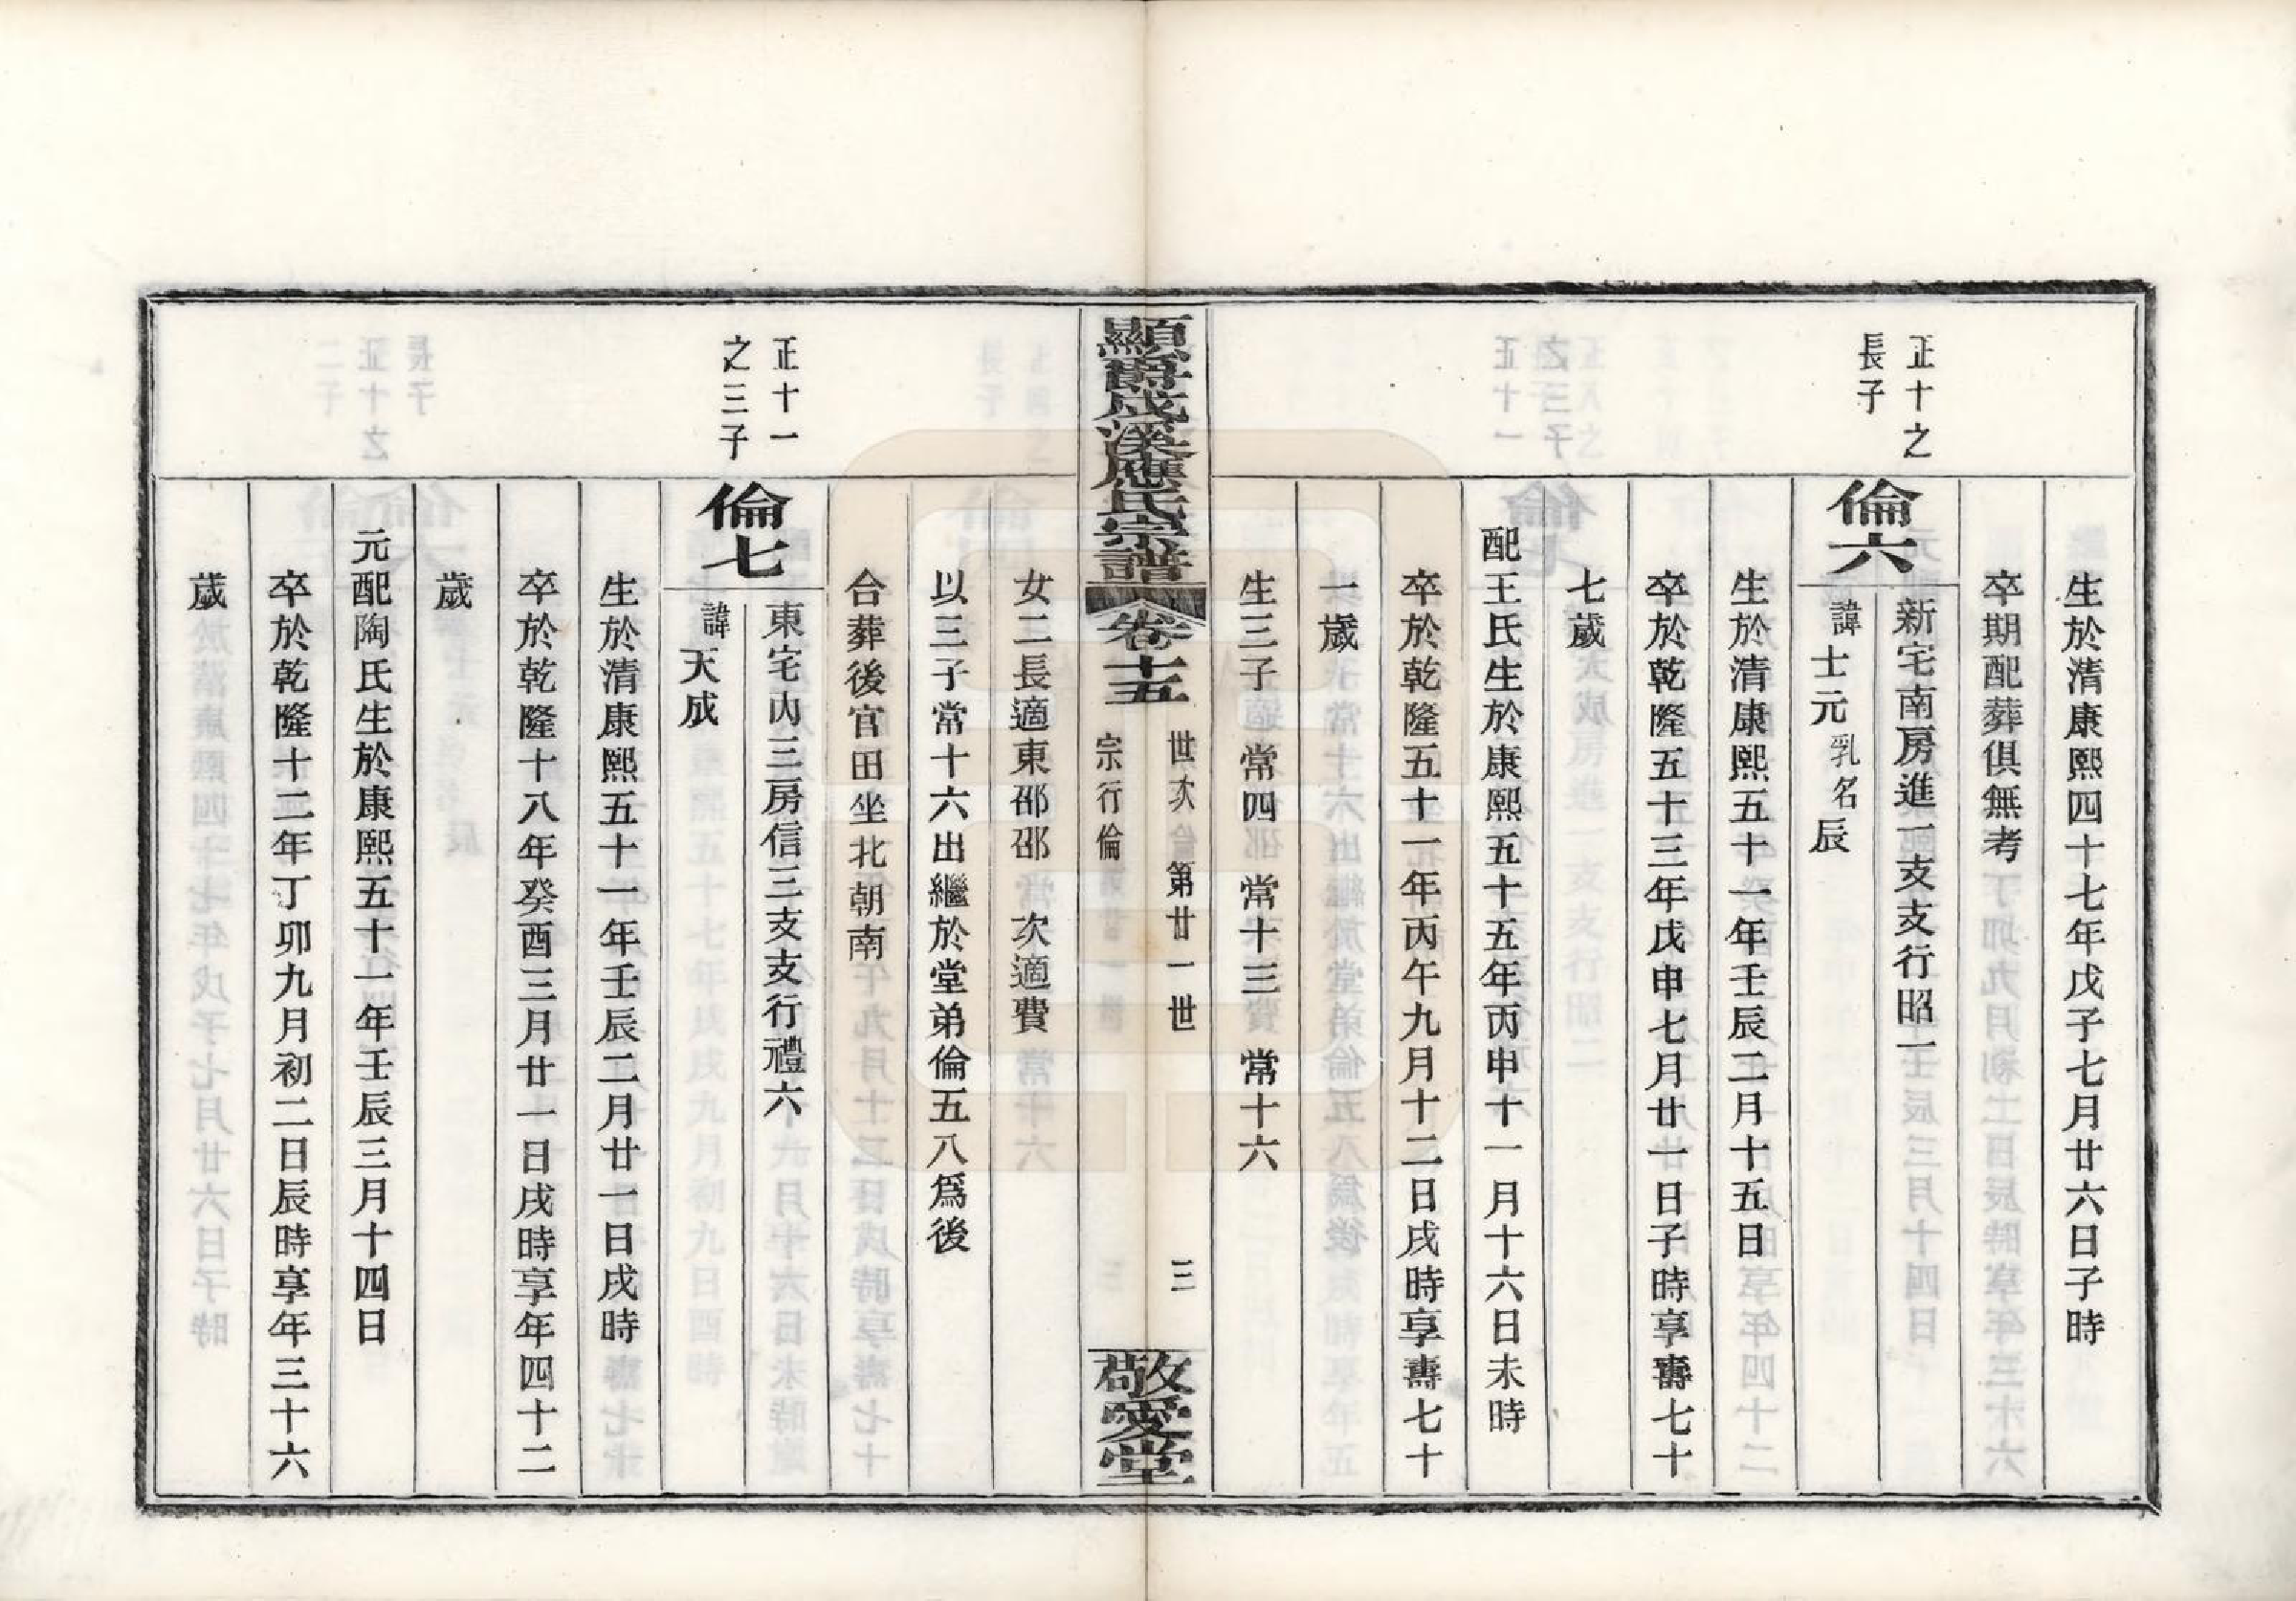 生於清康熙四十七年戊子七月廿六日子時
卒期配葬俱無考
正十之
長子
倫六
新宅南房進一支支行昭一
諱士元乳名辰
生於清康熙五十一年壬辰二月十五日
卒於乾隆五十三年戊申七月廿一日子時享壽七十
七歲
配王氏生於康熙五十五年丙申十一月十六日未時
卒於乾隆五十一年丙午九月十二日戌時享壽七十
一歲
生三子 常四 常十三 常十六
顯爵成溪應氏宗譜
卷十五
世次 第廿一世
宗行倫
三
敬愛堂
女二長適東邵邵 次適費
以三子常十六出繼於堂弟倫五八爲後
合葬後官田坐北朝南
正十一
之三子
倫七
東宅內三房信三支支行禮六
諱天成
生於清康熙五十一年壬辰二月廿一日戌時
卒於乾隆十八年癸酉三月廿一日戌時享年四十二
歲
元配陶氏生於康熙五十一年壬辰三月十四日
卒於乾隆十二年丁卯九月初二日辰時享年三十六
歲